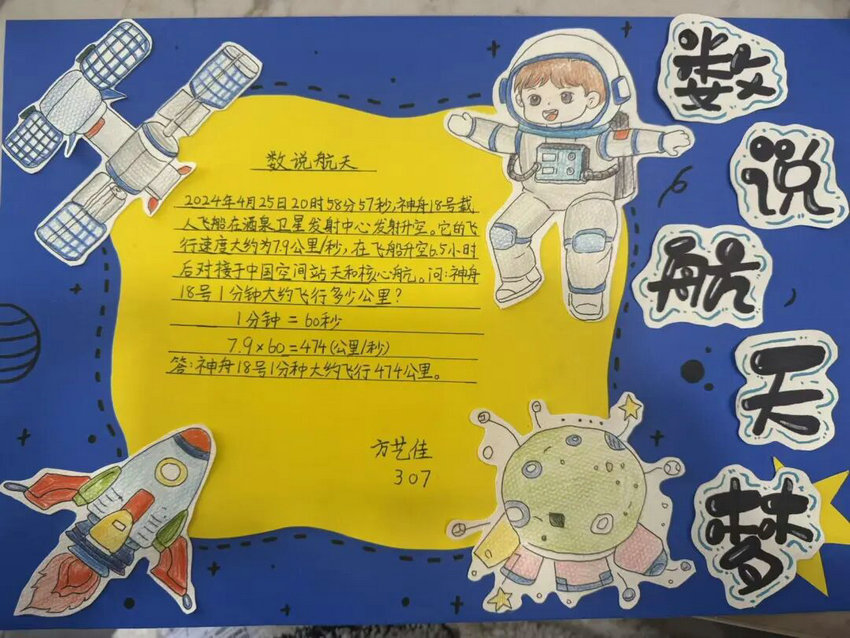 数说航天梦
数说航天
2024年4月25日20时58分57秒,神舟18号载
人飞船在酒泉卫星发射中心发射升空。它的飞
行速度大约为7.9公里/秒,在飞船升空6.5小时
后对接于中国空间站天和核心航。问:神舟
18号1分钟大约飞行多少公里?
1分钟=60秒
7.9×60=474(公里/秒)
答:神舟18号1分种大约飞行474公里。
方艺佳
307